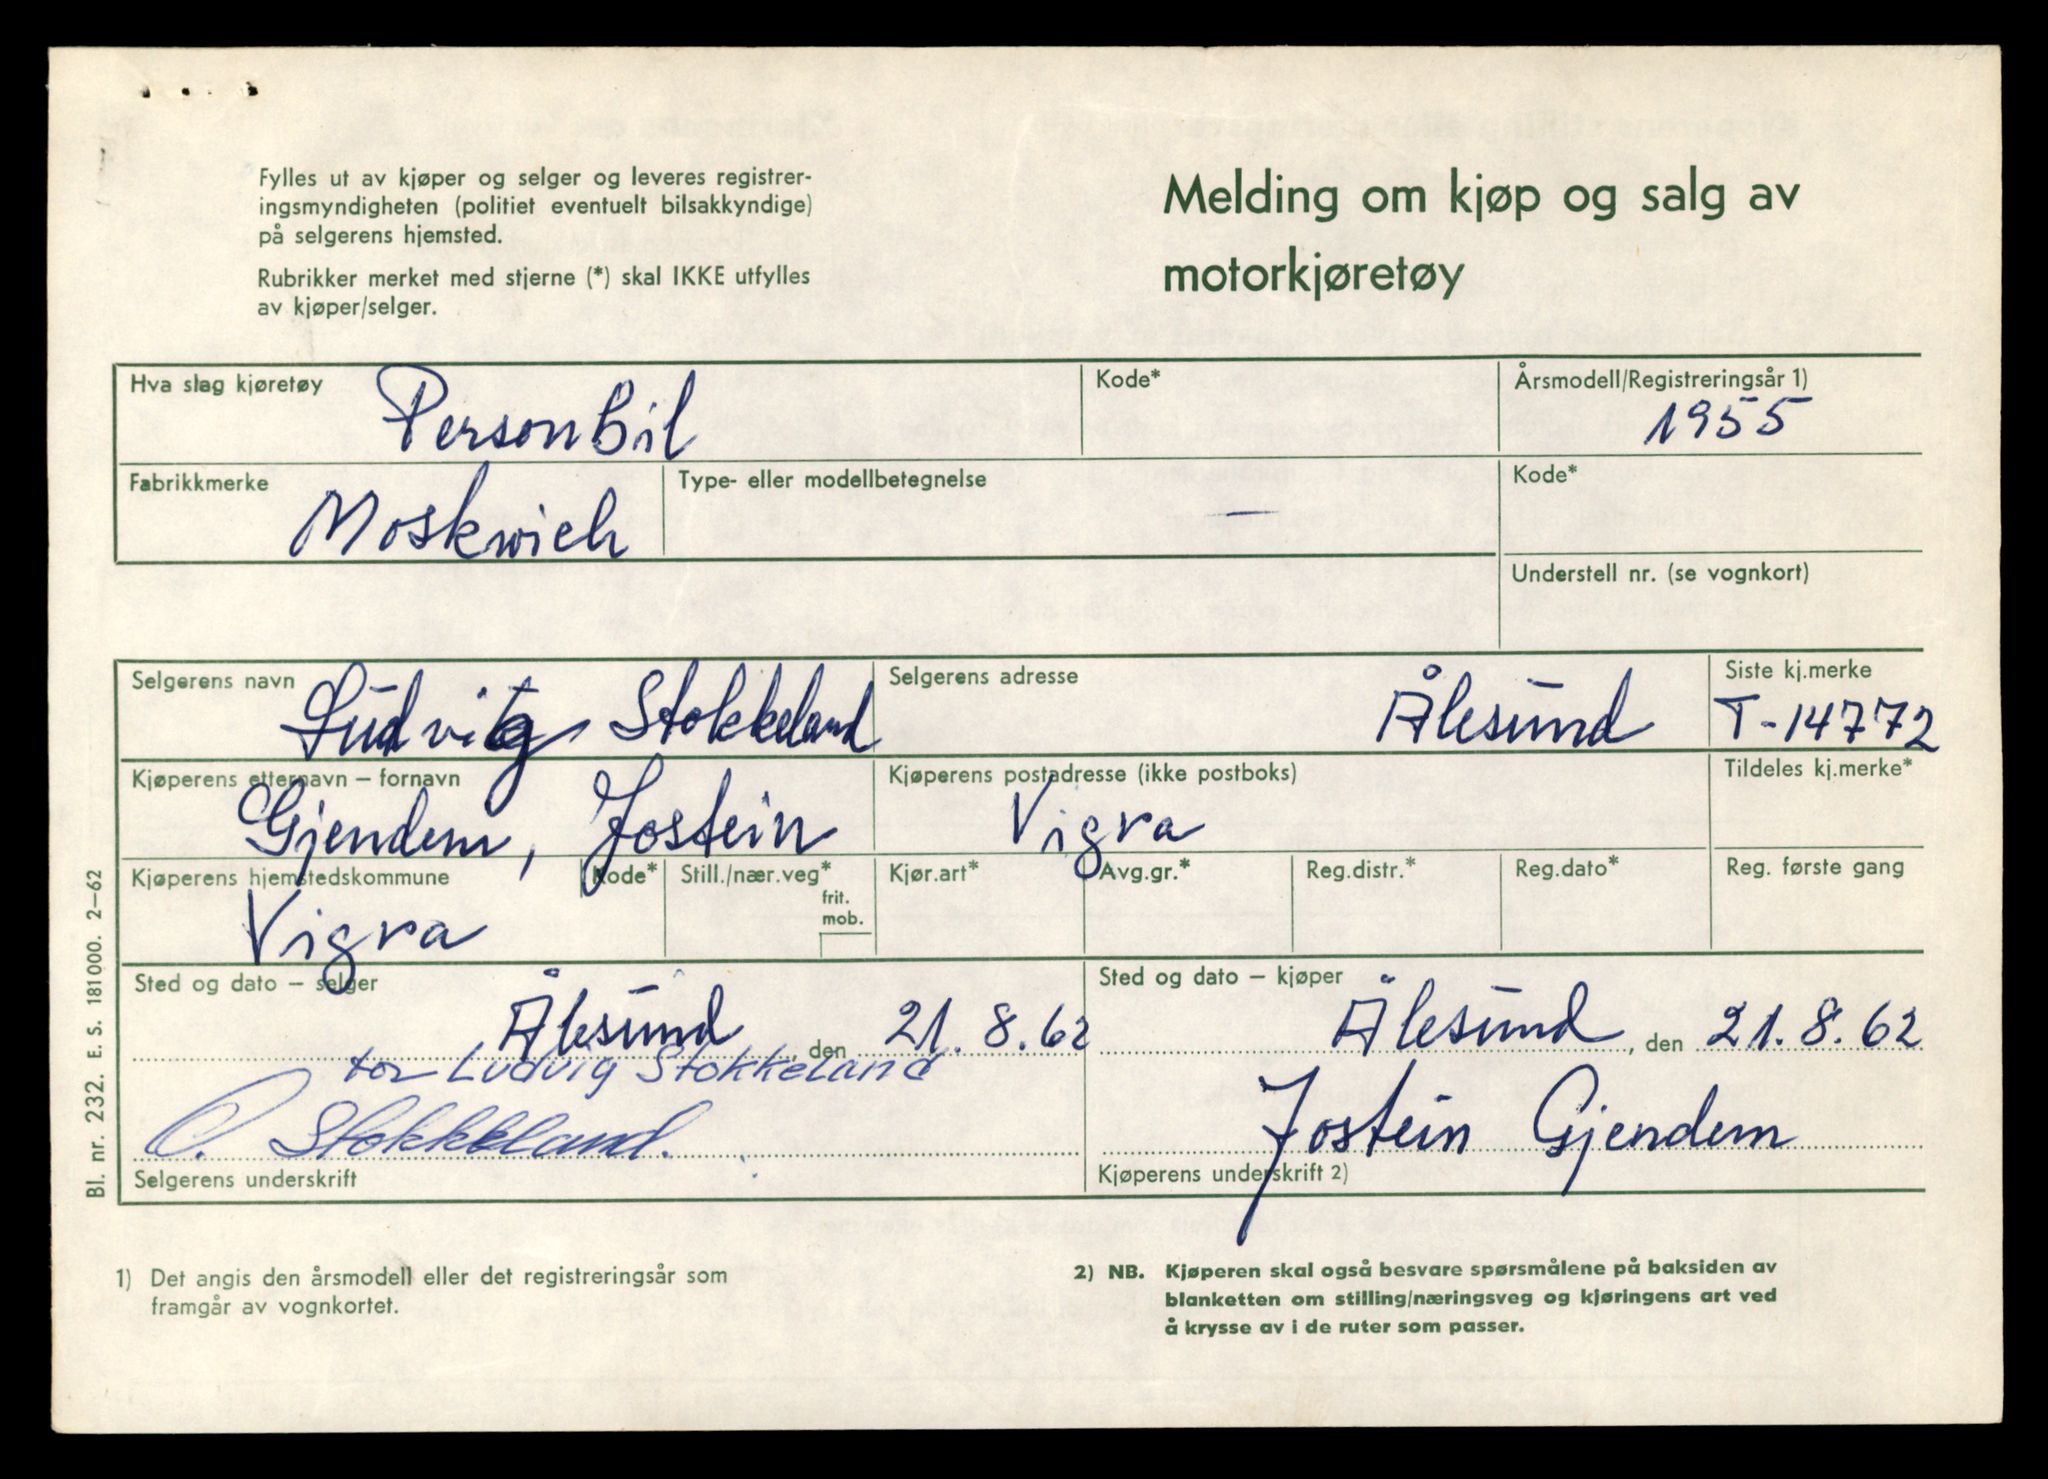 Fylles ut av kjøper og selger og leveres registrer-
ingsmyndigheten (politiet eventuelt bilsakkyndige)
på selgerens hjemsted.
Rubrikker merket med stjerne (*) skal IKKE utfylles
av kjøper/selger.
Melding om kjøp og salg av
motorkjøretøy
Hva slag kjøretøy
Personbil
Kode*
Årsmodell/Registreringsår 1)
1955
Fabrikkmerke
Moskwich
Type- eller modellbetegnelse
–
Kode*
Understell nr. (se vognkort)
Selgerens navn
Ludvig Stokkeland
Selgerens adresse
Ålesund
Siste kj.merke
T-14772
Kjøperens etternavn – fornavn
Gjendem, Jostein
Kjøperens postadresse (ikke postboks)
Vigra
Tildeles kj.merke*
Kjøperens hjemstedskommune
Vigra
Kode*
Still./nær.veg*
frit.
mob.
Kjør.art*
Avg.gr.*
Reg.distr.*
Reg.dato*
Reg. første gang
Sted og dato – selger
Ålesund, den 21.8.62
for Ludvig Stokkeland
O. Stokkeland.
Selgerens underskrift
Sted og dato – kjøper
Ålesund, den 21.8.62
Jostein Gjendem
Kjøperens underskrift 2)
Bl. nr. 232. E. S. 181000. 2–62
1) Det angis den årsmodell eller det registreringsår som
framgår av vognkortet.
2) NB. Kjøperen skal også besvare spørsmålene på baksiden av
blanketten om stilling/næringsveg og kjøringens art ved
å krysse av i de ruter som passer.